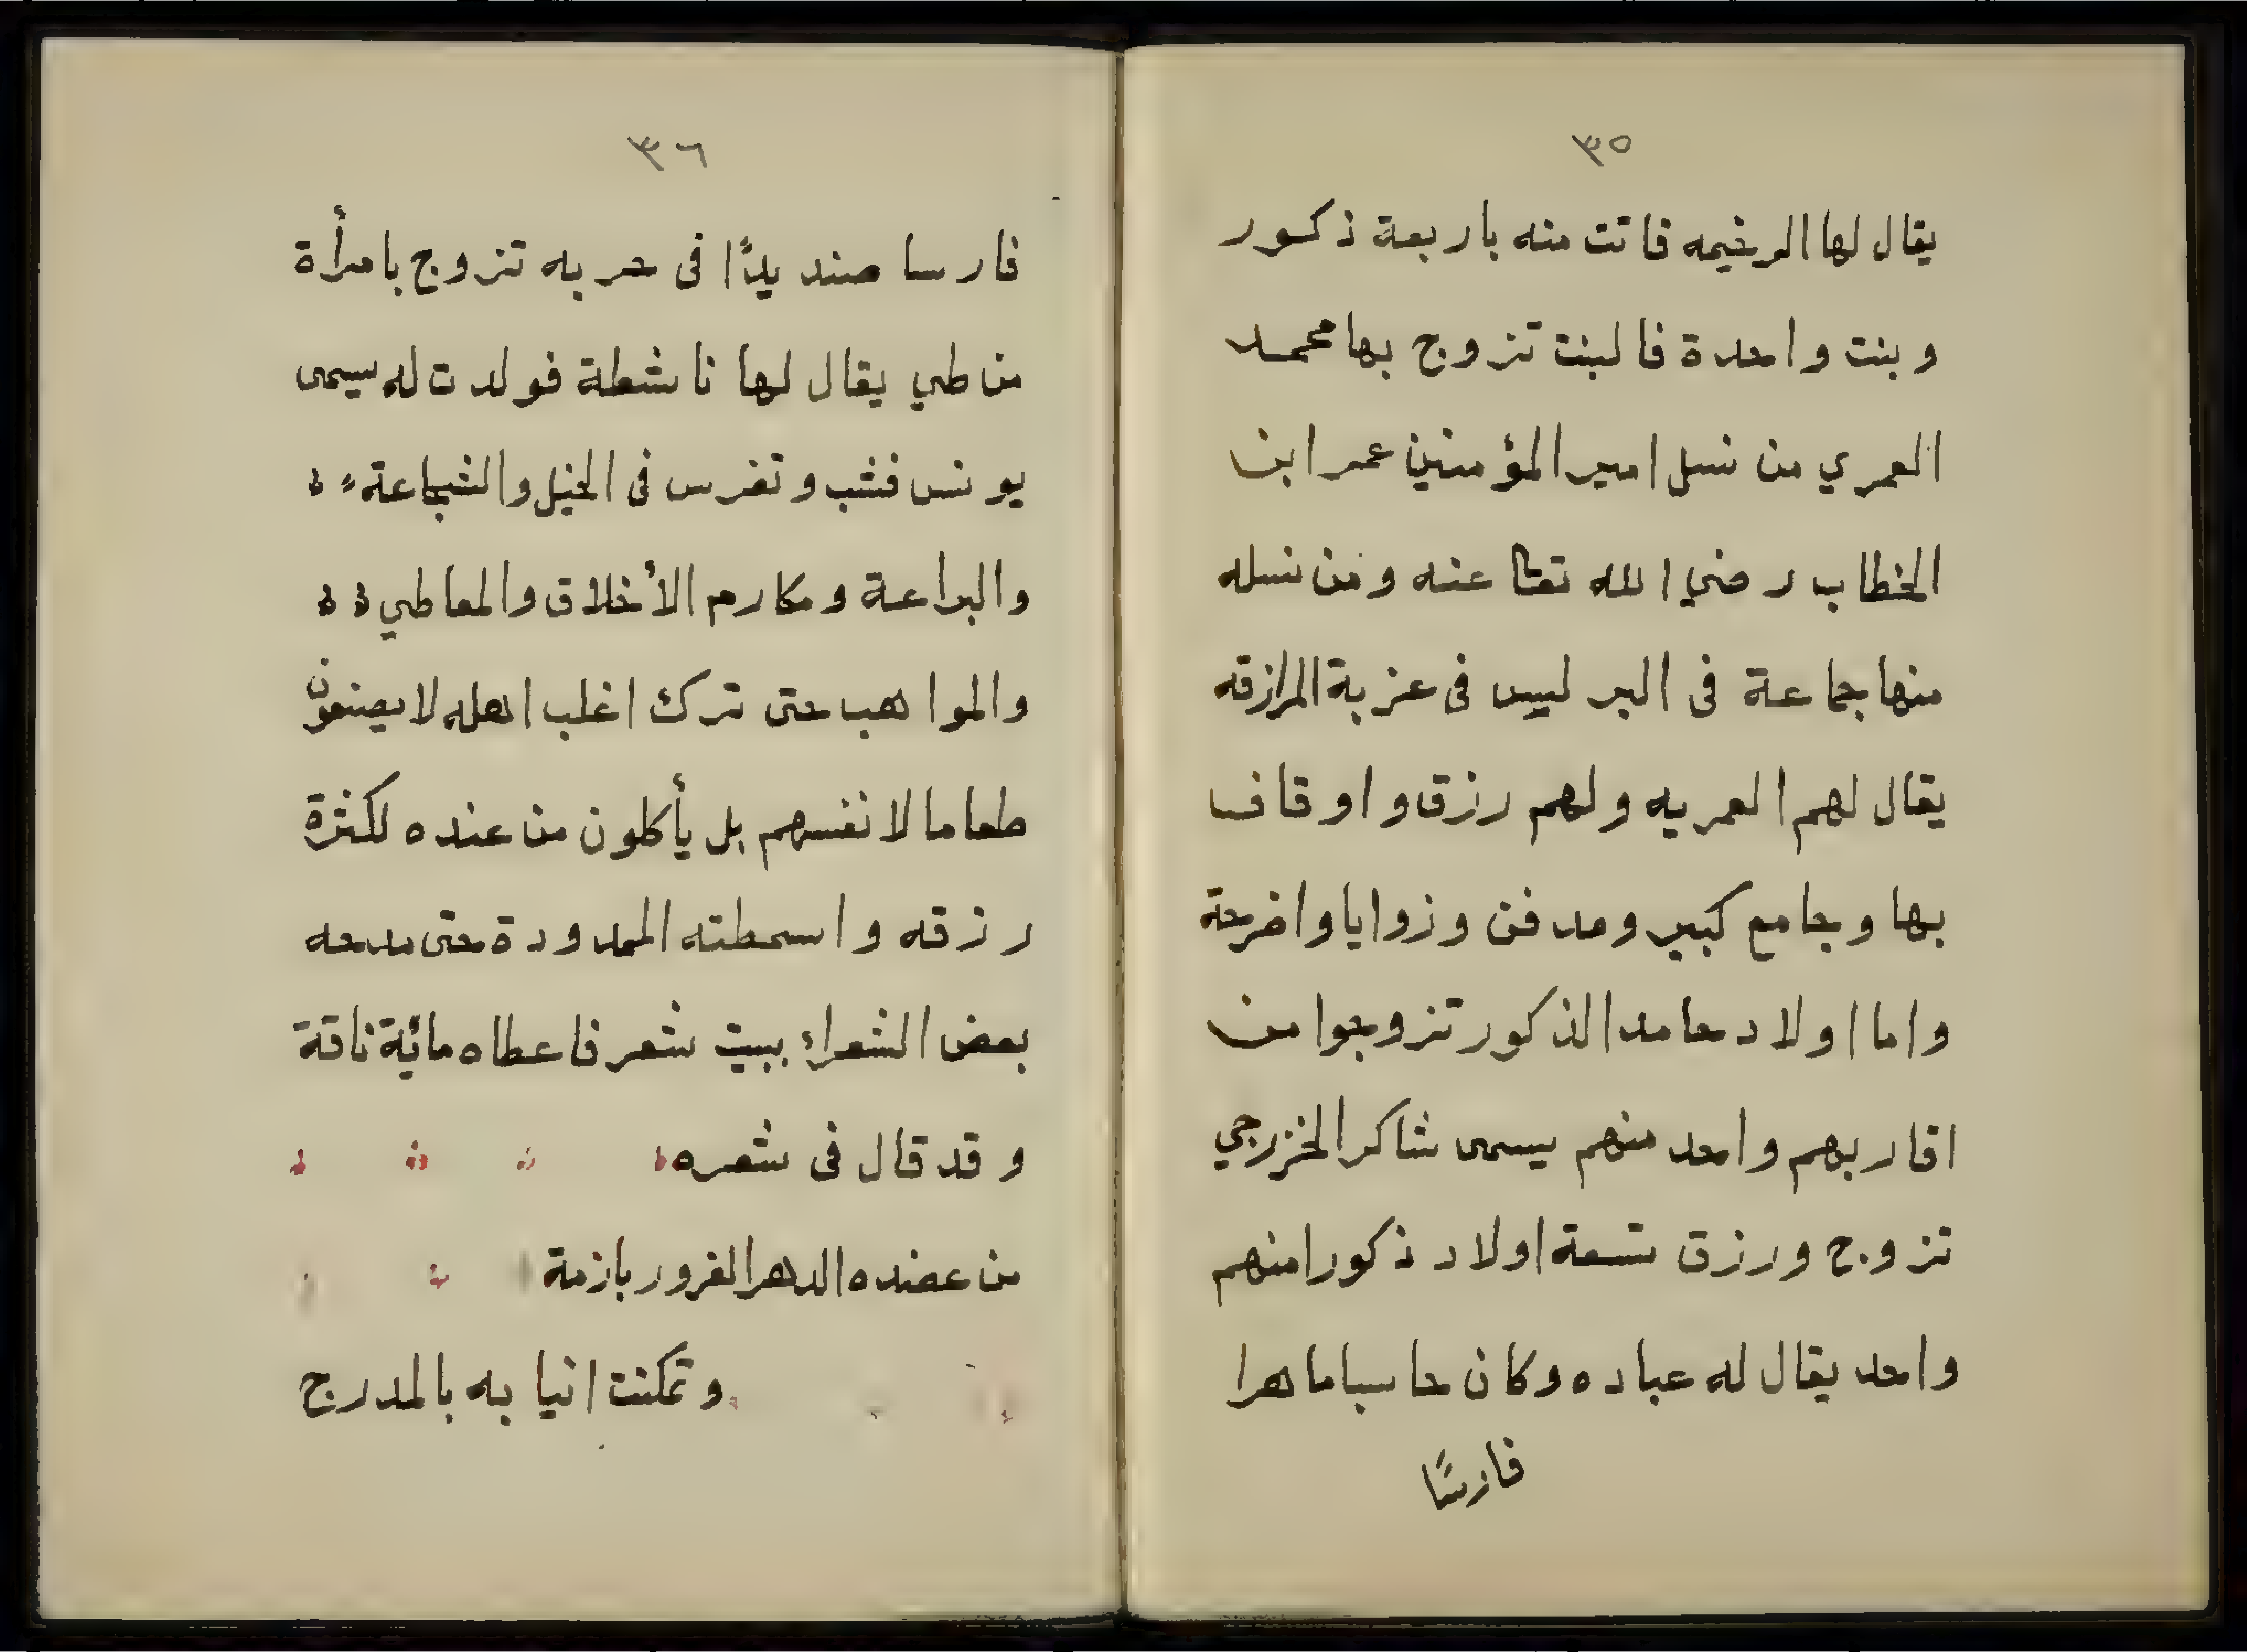 ٣٥
يقال لها الرخيمه فاتت منه باربعة ذكور
وبنت واحدة فالبنت تزوج بها محمد
العمري من نسل امير المؤمنين عمر ابن
الخطاب رضي الله تعا عنه ومن نسله
منها جماعة فى البر ليس فى عزبة المرازقه
يقال لهم العمريه ولهم رزق واوقاف
بها وجامع كبير ومدفن وزوايا واضرحة
واما اولاد حامد الذكور تزوجوا من
اقاربهم واحد منهم يسمى شاكر الخزرجي
تزوج ورزق تسعة اولاد ذكورا منهم
واحد يقال له عباده وكان حاسبا ماهرا
فارسًا
٣٦
فارسا صنديدًا فى حربه تزوج بامرأة
من طي يقال لها ناشطة فولدت له يسمى
يونس فشب وتفرس فى الخيل والشجاعة
والبراعة ومكارم الأخلاق والمعاطي
والمواهب حتى ترك اغلب اهله لا يصنعون
طعاما لانفسهم بل يأكلون من عنده لكثرة
رزقه واسمطته الممدودة حتى مدحه
بعض الشعراء ببيت شعر فاعطاه مائة ناقة
وقد قال فى شعره
من عضده الدهر الغرور بازمة
وتمكنت انيابه بالمدرج